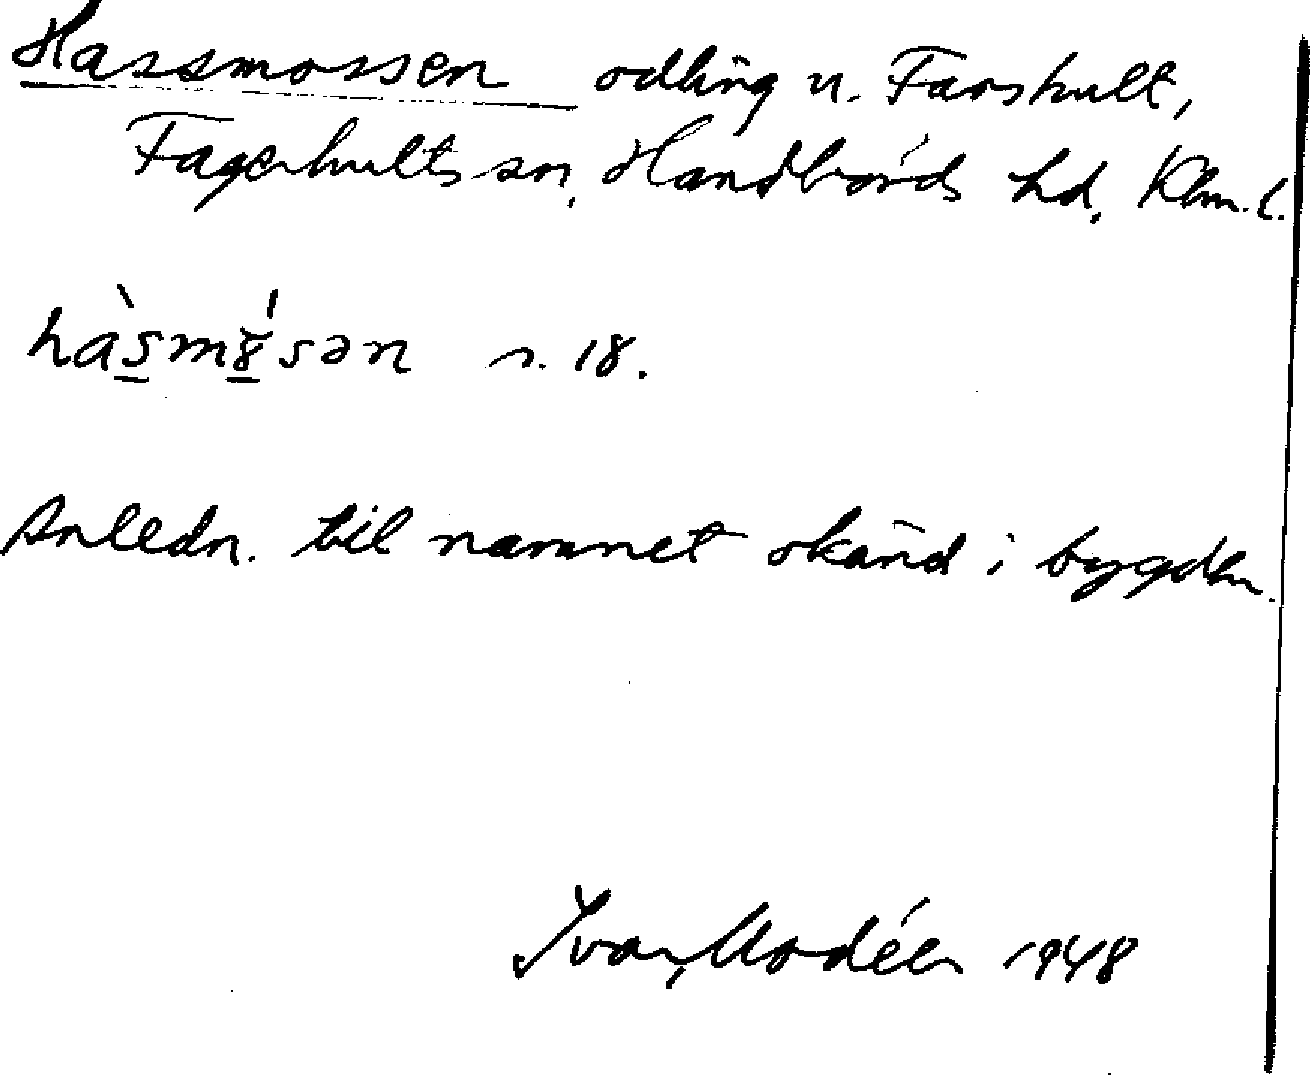 Hassmossen odling u. Farshult,
Fagerhults sn, Handbörds hd, Klm. l.
hàs̠mɤ̠́sən s. 18.
Anledn. till namnet okänd i bygden.
Ivar Modéer 1948